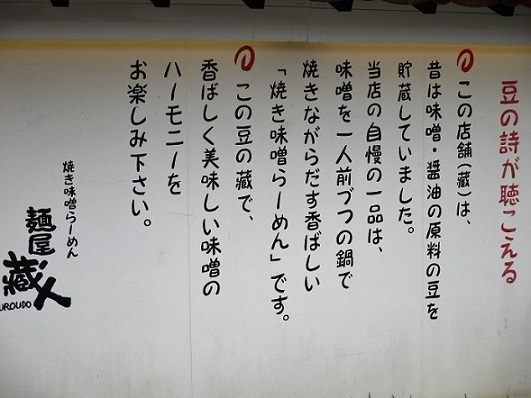 豆の詩が聴こえる
この店舗(蔵)は、
昔は味噌・醤油の原料の豆を
貯蔵していました。
当店の自慢の一品は、
味噌を一人前づつの鍋で
焼きながらだす香ばしい
「焼き味噌らーめん」です。
この豆の蔵で、
香ばしく美味しい味噌の
ハーモニーを
お楽しみ下さい。
焼き味噌らーめん
麺屋
蔵人
KUROUDO